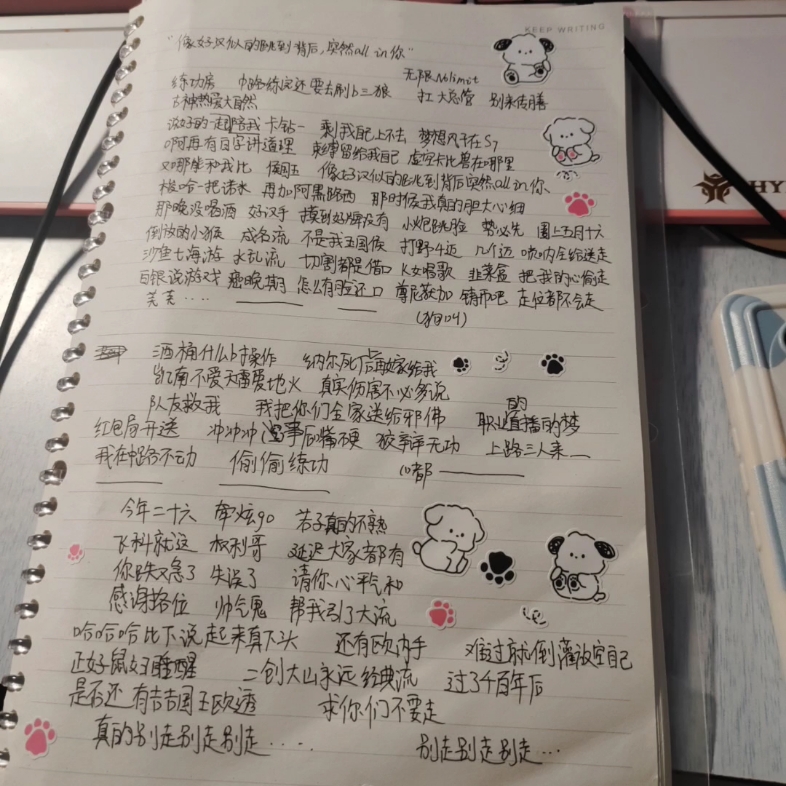 KEEP WRITING
"像好汉似的跳到背后,突然all in你"
练功房 中路练完还要去刷b三狼 无限Nolimit
古神热爱大自然 扛大总管 别来传膳
说好的一起陪我卡钻一 剩我自己上不去 梦想内子在S7
啊再有自字讲道理 束缚留给我自己 虚空卡比兽在哪里
又哪些和我比 像好汉似的跳到背后突然all in你
梭哈一把诸水 再加阿黑路西 那时候我真的胆大心细
那晚没喝酒 好汉手 摸到好牌没有 小炮跳脸 势必先 围上五月十六
倒放的小猴 成名流 不是我王国侯 打野4迈 几个迈 喷内全给送走
沙鱼七海游 水乱流 切割都是借口 K女唱歌 韭菜盒 把我的心偷走
白银说游戏 癌晚期 怎么有脸还口 尊尼获加 铸币吧 走位都不会走
芜芜····
(狗叫)
酒桶什么b操作 纳尔死后再嫁给我
凯南不爱天雷爱地火 真实伤害不必多说
队友救我 我把你们全家送给邪佛 职业直播的梦
的
红包局开送 冲冲冲 没事后嘴硬 狡辩无功 上路三人来
我在中路不动 偷偷练功 (都
今年二十六 牵炫go 若子真的不熟
飞科就这 权利哥 延迟大家都有
你跌又急了 失误了 请你心平气和
感谢各位 帅气鬼 帮我引了大流
哈哈哈比下说起来真下头 还有欧内手 难过就倒灌放空自己
正好鼠妇睡醒 二创大山永远经典流 过了千百年后
是否还有吉吉国王欧透 求你们不要走
真的别走别走别走····· 别走别走别走···
HY